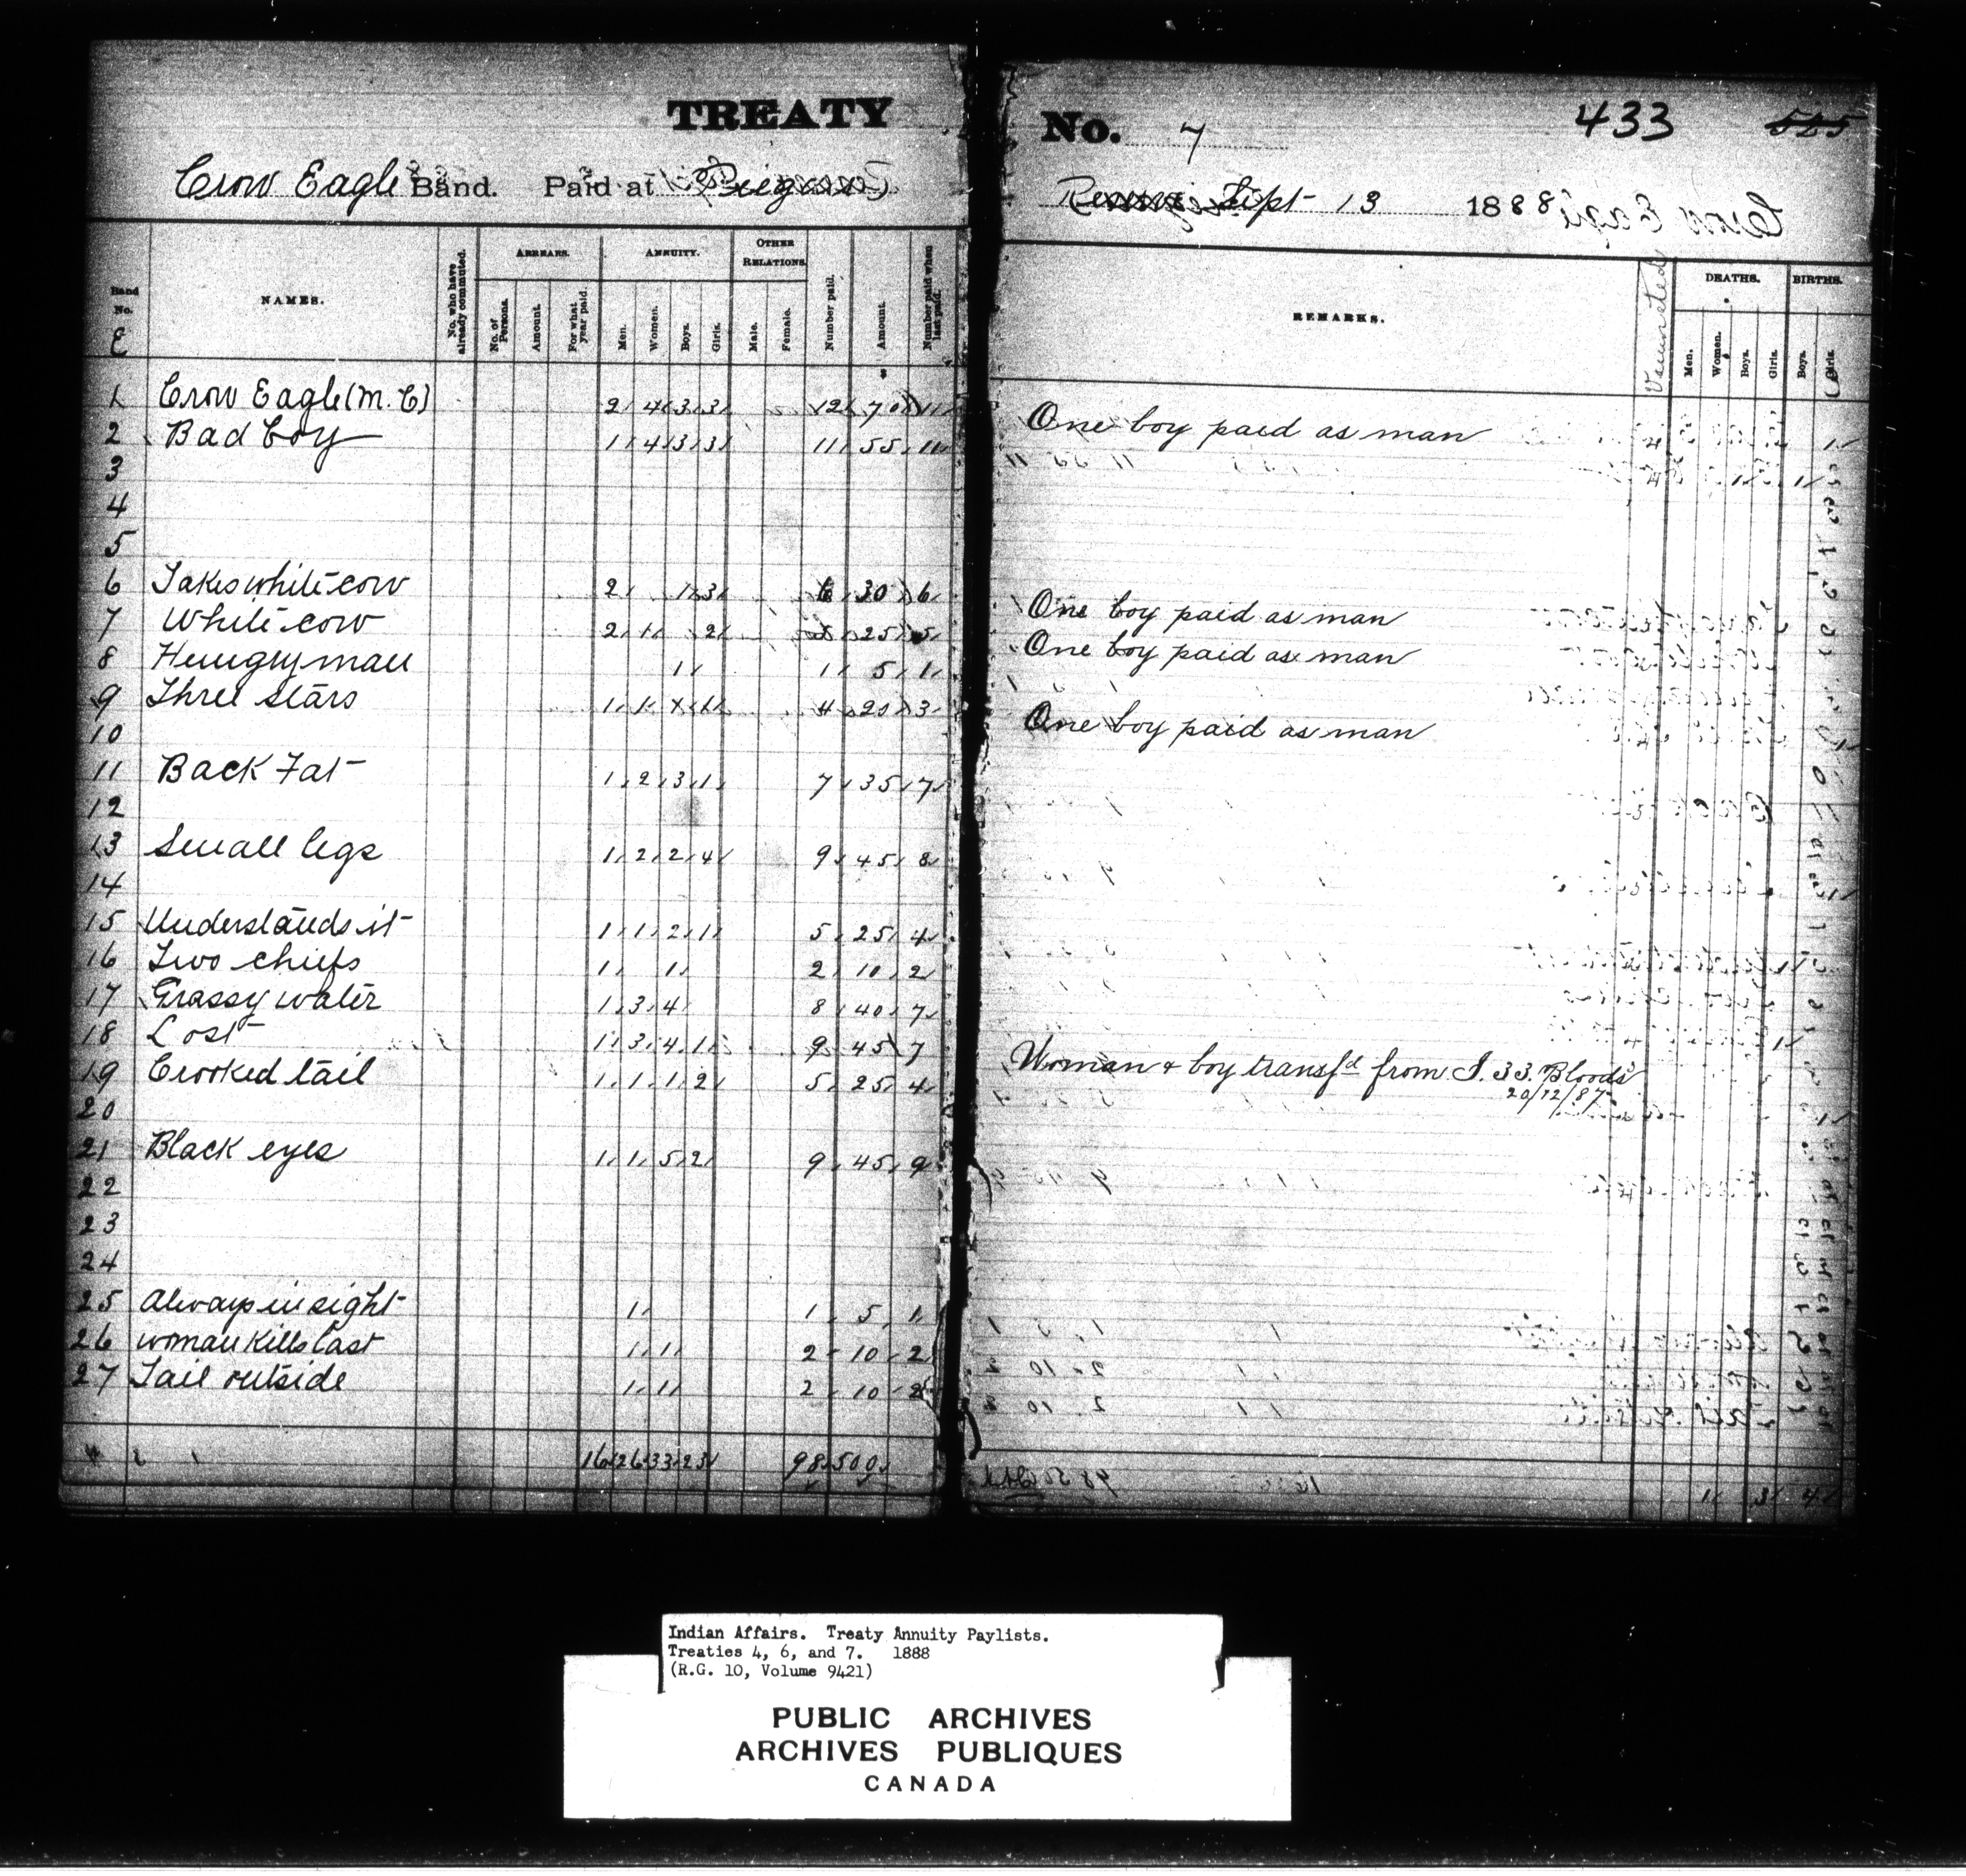 TREATY No. 7 433 565
Crow Eagle Band. Paid at Piegan Reserve Sept 13 1888
Band No. NAMES. No. who have already commuted. ARREARS. No. of Persons. Amount. For what year paid. ANNUITY. Men. Women. Boys. Girls. OTHER RELATIONS. Male. Female. Number paid. Amount. Number paid when last paid. REMARKS. Vaccinated DEATHS. Men. Women. Boys. Girls. BIRTHS. Boys. Girls.
E
1 Crow Eagle (M.C) 2 4 3 3 12 70 11 One boy paid as man 4 1
2 Bad boy 1 4 3 3 11 55 11 4 1 1
3
4
5
6 Takes white cow 2 1 3 6 30 6 One boy paid as man
7 White cow 2 1 2 5 25 5 One boy paid as man
8 Hungry man 1 1 5 1
9 Three stars 1 1 1 1 4 20 3 One boy paid as man 1
10
11 Back Fat 1 2 3 1 7 35 7
12
13 Small legs 1 2 2 4 9 45 8 1
14
15 Understands it 1 1 2 1 5 25 4 1
16 Two chiefs 1 1 2 10 2
17 Grassy water 1 3 4 8 40 7 1
18 Lost 1 3 4 1 9 45 7 Woman & boy transfd from I. 33. Bloods 20/12/87
19 Crooked tail 1 1 1 2 5 25 4 1
20
21 Black eyes 1 1 5 2 9 45 9
22
23
24
25 Always in sight 1 1 5 1
26 woman kills last 1 1 2 10 2
27 Tail outside 1 1 2 10 2
16 26 33 23 98 500 1 3 4
Indian Affairs. Treaty Annuity Paylists.
Treaties 4, 6, and 7. 1888
(R.G. 10, Volume 9421)
PUBLIC ARCHIVES
ARCHIVES PUBLIQUES
CANADA